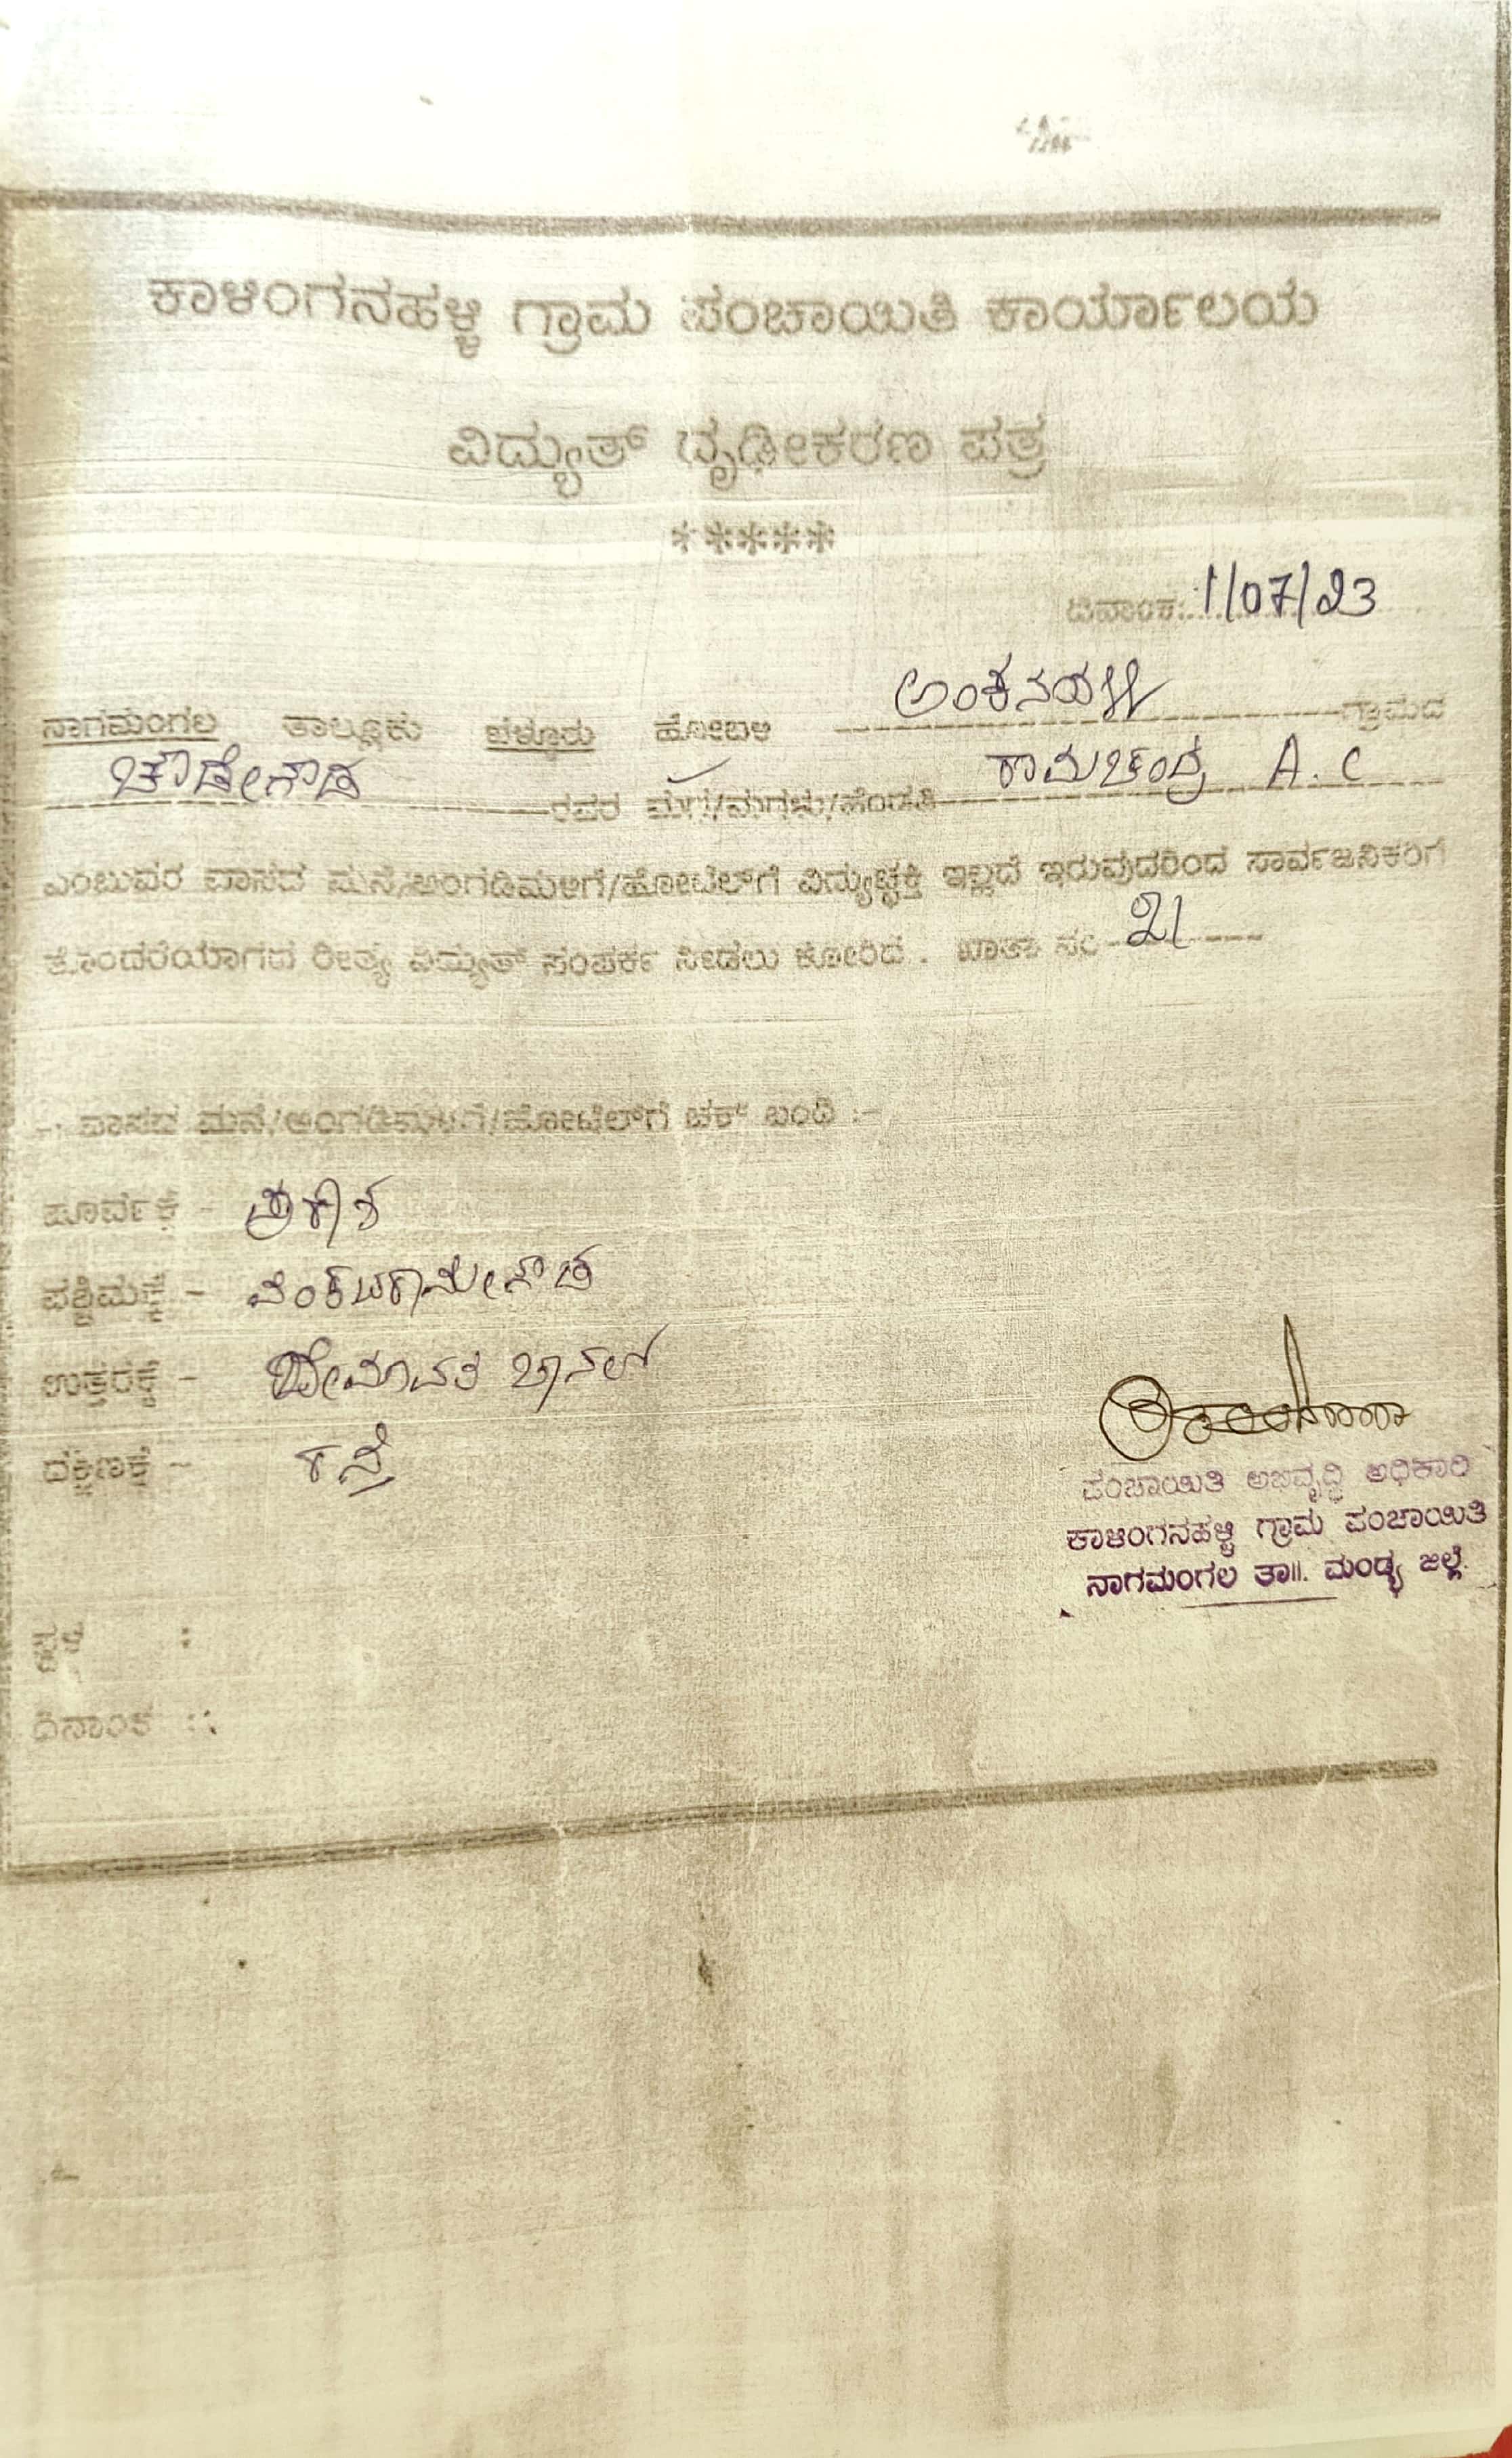 ಕಾಳಿಂಗನಹಳ್ಳಿ ಗ್ರಾಮ ಪಂಚಾಯಿತಿ ಕಾರ್ಯಾಲಯ
ವಿದ್ಯುತ್ ಧೃಢೀಕರಣ ಪತ್ರ
*****
ದಿನಾಂಕ: 1/07/23
ನಾಗಮಂಗಲ ತಾಲ್ಲೂಕು ಬೆಳ್ಳೂರು ಹೋಬಳಿ ಅಂಕನಹಳ್ಳಿ ಗ್ರಾಮದ
ಚೌಡೇಗೌಡ ರವರ ಮಗ/ಮಗಳು/ಹೆಂಡತಿ ರಾಮಚಂದ್ರ A.C
ಎಂಬುವರ ವಾಸದ ಮನೆ/ಅಂಗಡಿಮಳಿಗೆ/ಹೋಟೆಲ್‌ಗೆ ವಿದ್ಯುಚ್ಛಕ್ತಿ ಇಲ್ಲದೆ ಇರುವುದರಿಂದ ಸಾರ್ವಜನಿಕರಿಗೆ
ತೊಂದರೆಯಾಗದ ರೀತ್ಯ ವಿದ್ಯುತ್ ಸಂಪರ್ಕ ನೀಡಲು ಕೋರಿದೆ . ಖಾತಾ ನಂ 21
-: ವಾಸದ ಮನೆ/ಅಂಗಡಿಮಳಿಗೆ/ಹೋಟೆಲ್‌ಗೆ ಚಕ್ ಬಂದಿ :-
ಪೂರ್ವಕ್ಕೆ -
ಪಶ್ಚಿಮಕ್ಕೆ - ವೆಂಕಟರಾಮೇಗೌಡ
ಉತ್ತರಕ್ಕೆ - ಹೇಮಾವತಿ ಚಾನಲ್
ದಕ್ಷಿಣಕ್ಕೆ - ರಸ್ತೆ
ಪಂಚಾಯಿತಿ ಅಭಿವೃದ್ಧಿ ಅಧಿಕಾರಿ
ಕಾಳಿಂಗನಹಳ್ಳಿ ಗ್ರಾಮ ಪಂಚಾಯಿತಿ
ನಾಗಮಂಗಲ ತಾ||. ಮಂಡ್ಯ ಜಿಲ್ಲೆ.
ಸ್ಥಳ :
ದಿನಾಂಕ :